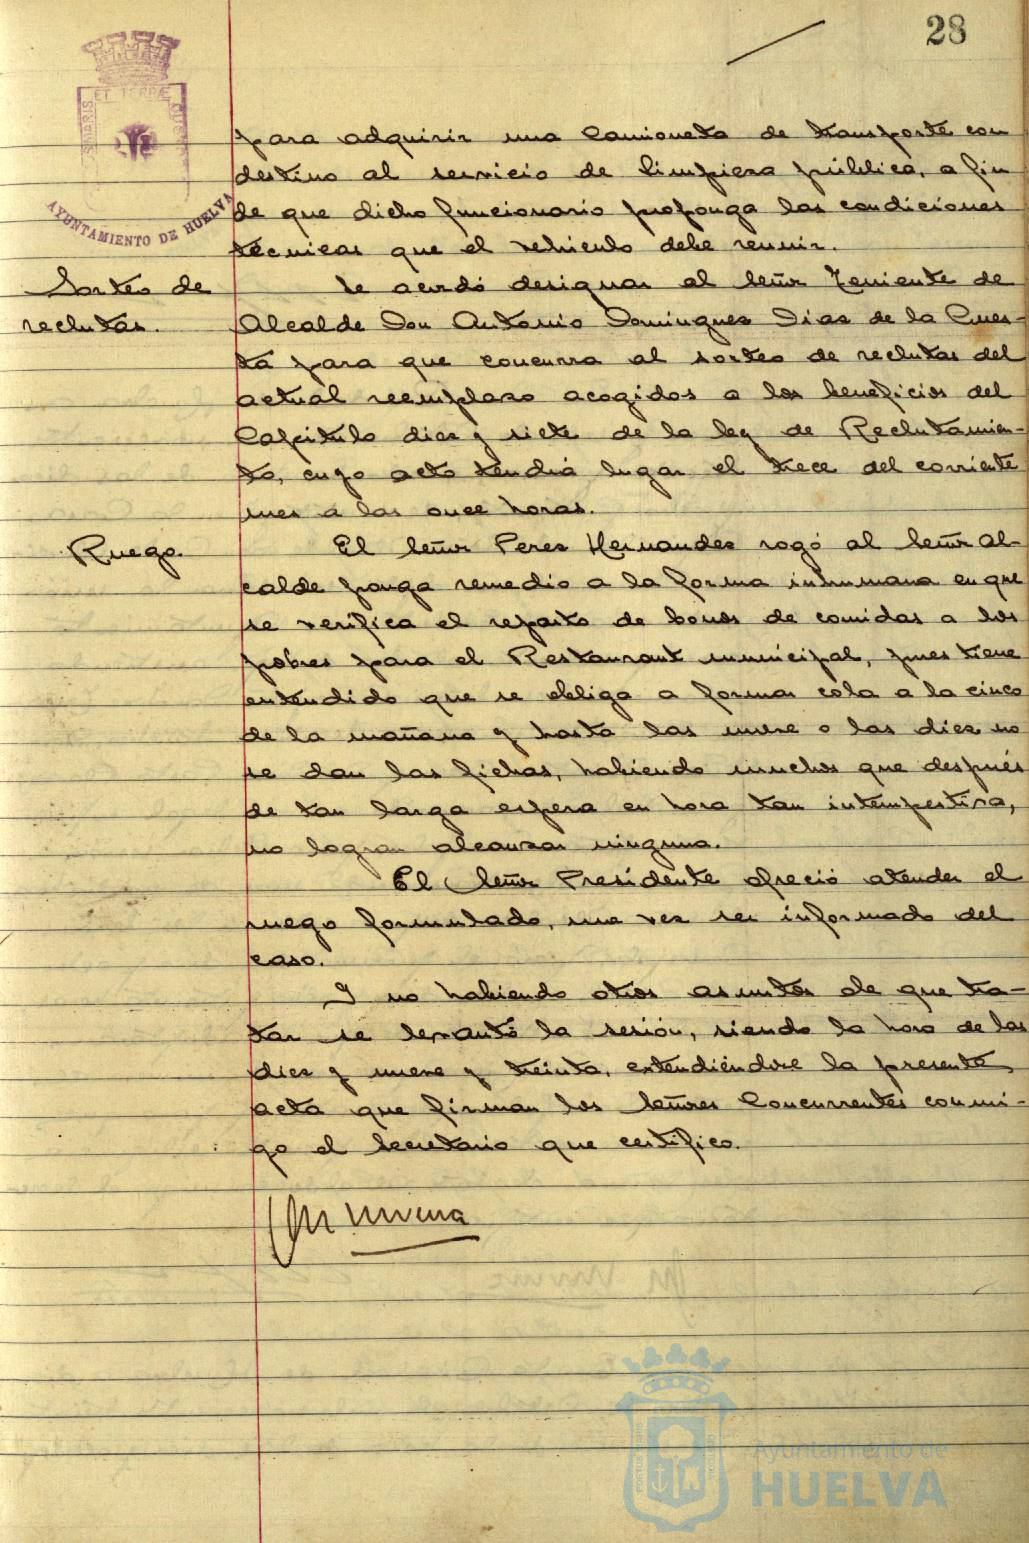 28
para adquirir una Camioneta de transporte con
destino al servicio de limpieza pública, a fin
de que dicho funcionario proponga las condiciones
técnicas que el vehiculo debe reunir.
AYUNTAMIENTO DE HUELVA
Sorteo de
reclutas.
Se acordó designar al Señor Teniente de
Alcalde Don Antonio Dominguez Diaz de la Cues-
ta para que concurra al sorteo de reclutas del
actual reemplazo acogidos a los beneficios del
Capitulo diez y siete de la ley de Reclutamien-
to, cuyo acto tendrá lugar el trece del corriente
mes a las once horas.
Ruego.
El Señor Perez Hernandez rogó al Señor Al-
calde ponga remedio a la forma inhumana en que
se verifica el reparto de bonos de comidas a los
pobres para el Restaurant municipal, pues tiene
entendido que se obliga a formar cola a la cinco
de la mañana y hasta las nueve o las diez no
se dan las fichas, habiendo muchos que después
de tan larga espera en hora tan intempestiva,
no logran alcanzar ninguna.
El Señor Presidente ofreció atender el
ruego formulado, una vez sea informado del
caso.
Y no habiendo otros asuntos de que tra-
tar se levantó la sesión, siendo la hora de las
diez y nueve y treinta, extendiéndose la presente
acta que firman los Señores Concurrentes conmi-
go el Secretario que certifico.
Ayuntamiento de
HUELVA